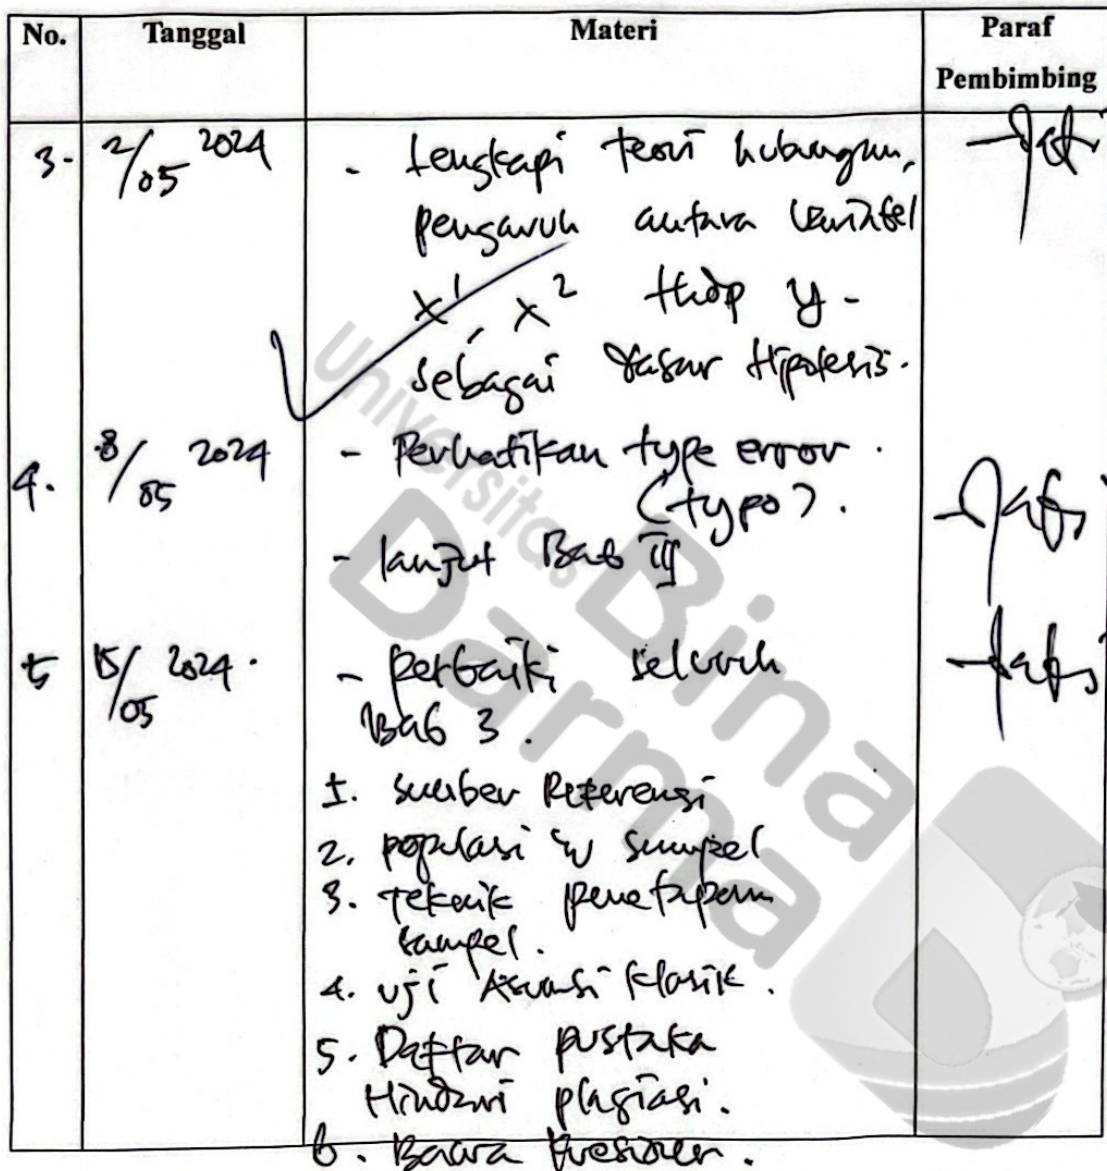 No. Tanggal Materi Paraf Pembimbing
3. 2/05 2024 - Lengkapi teori hubungan,
pengaruh antara variabel
X1, X2 thdp y -
sebagai dasar Hipotesis.
4. 8/05 2024 - Perhatikan type error.
(typo).
- lanjut Bab III
5 15/05 2024. - Perbaiki seluruh
Bab 3.
1. Sumber Referensi
2. populasi & sampel
3. Teknik penetapan
sampel.
4. uji Asumsi klasik.
5. Daftar pustaka
Hindari plagiasi.
6. Bawa kuesioner.
Universitas
Bina
Darma